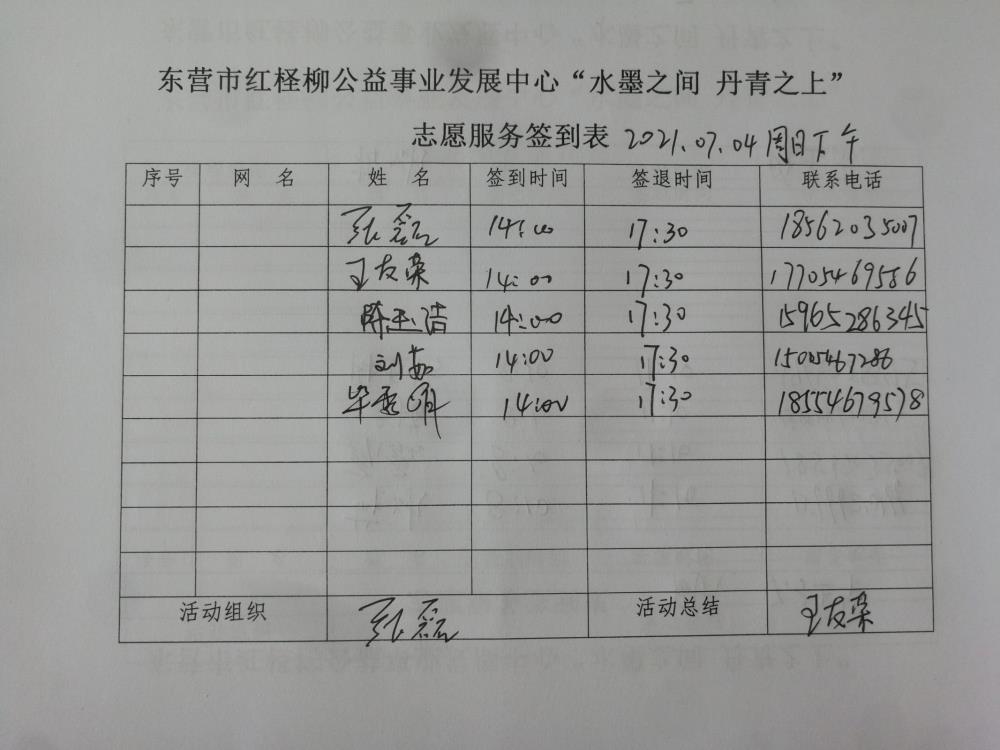 东营市红柽柳公益事业发展中心“水墨之间 丹青之上”
志愿服务签到表 2021.07.04 周日下午
序号 网 名 姓 名 签到时间 签退时间 联系电话
张磊 14:00 17:30 18562035007
王友荣 14:00 17:30 17705469586
陈玉洁 14:00 17:30 15965286345
刘茹 14:00 17:30 15005467286
毕 14:00 17:30 18554679578
活动组织 张磊 活动总结 王友荣